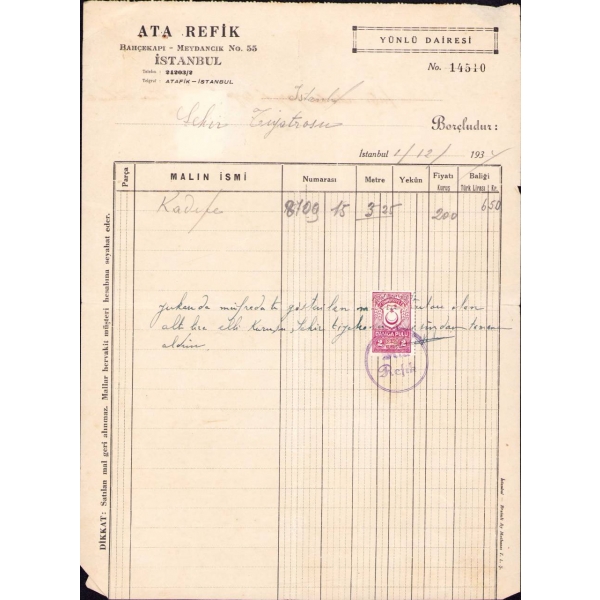 ATA REFİK
BAHÇEKAPI - MEYDANCIK No. 55
İSTANBUL
Telefon : 24203/2
Telgraf : ATAFİK-İSTANBUL
YÜNLÜ DAİRESİ
No. 14510
İstanbul
Şehir Tiyatrosu
Borçludur:
İstanbul 1/12/ 1937
Parça
MALIN İSMİ
Numarası
Metre
Yekûn
Fiyatı
Kuruş
Baliği
Türk Lirası
Kr.
Kadife 8109 15 3 25 200 6 50
yukarıda müfredatı gösterilen olan
altı lira elli kuruşu, Şehir tiyatrosundan tamamen
aldım.
DAMGA PULU
2 2
Refik
DİKKAT: Satılan mal geri alınmaz. Mallar hervakit müşteri hesabına seyahat eder.